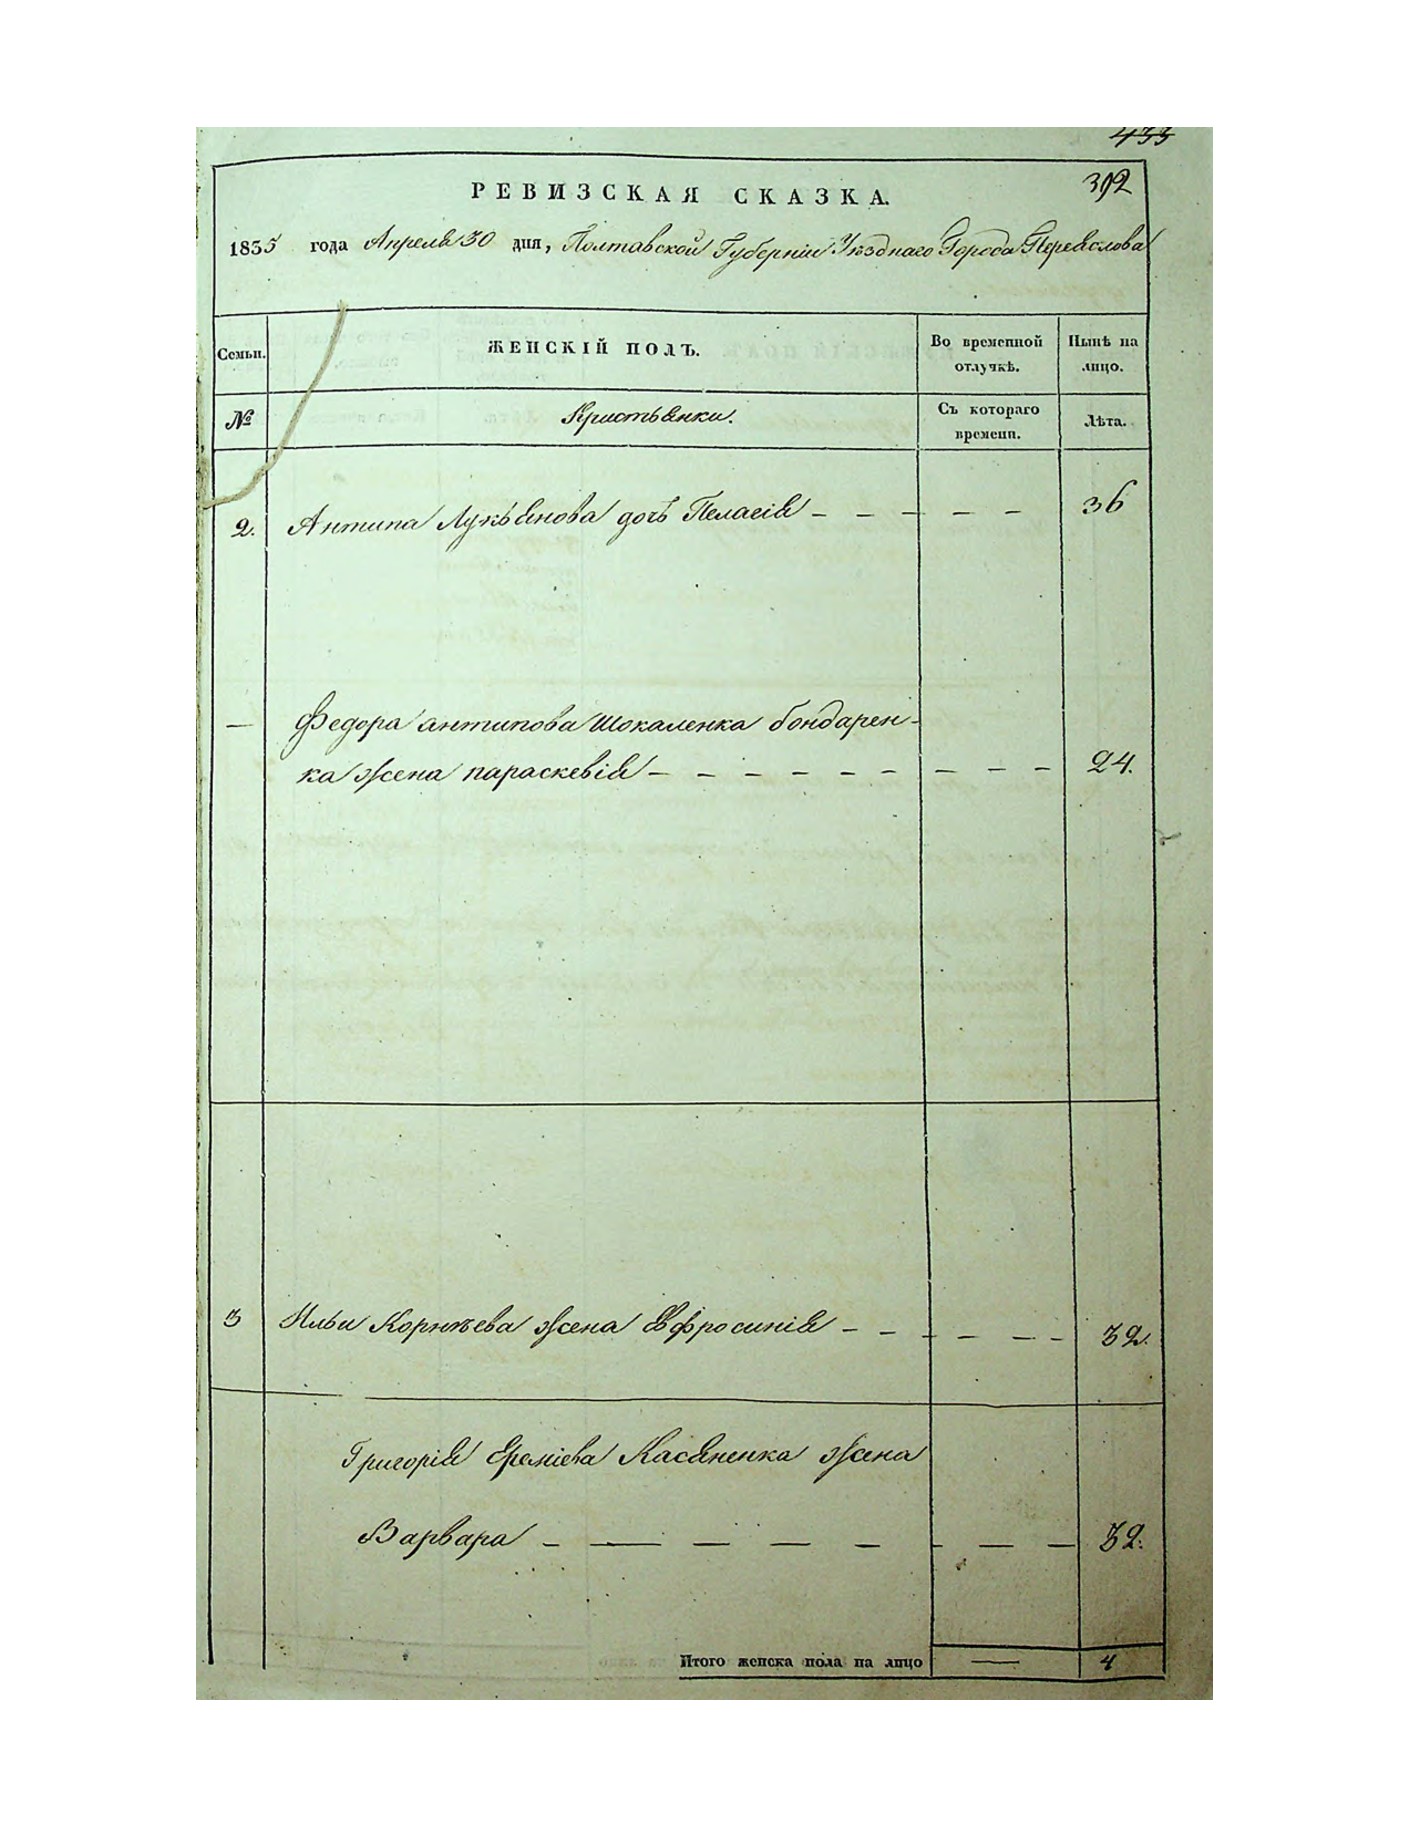 433
392
РЕВИЗСКАЯ СКАЗКА.
1835 года Апреля 30 дня, Полтавской Губерніи Уѣзднаго Города Переяслова
Семьи. ЖЕНСКІЙ ПОЛЪ. Во временной отлучкѣ. Нынѣ на лицо.
№ Кристьянки. Съ котораго времени. Лѣта.
2. Антипа Лукьянова дочь Пелагія – – – – – 36
— Федора Антипова Шокаленка бондарен-
ка жена параскевія – – – – – – – – – 24.
3 Ильи Корнѣева жена Евфросинія – – – – – – 32.
Григорія Еремѣева Касяненка жена
Варвара – — – – – – – – 32.
Итого женска пола на лицо — 4